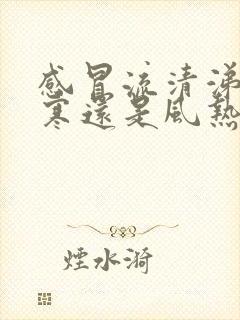 感冒流清涕
寒還是風熱
煙水漪